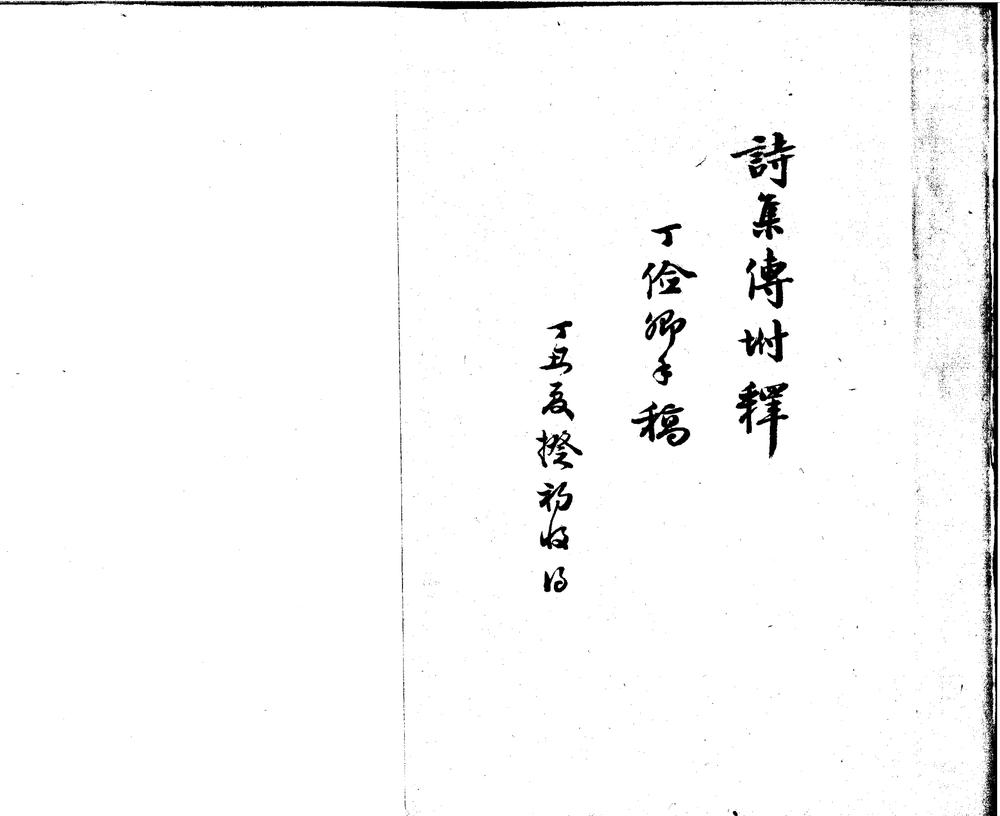 詩集傳坿釋
丁儉卿手稿
丁丑夏揆初收得